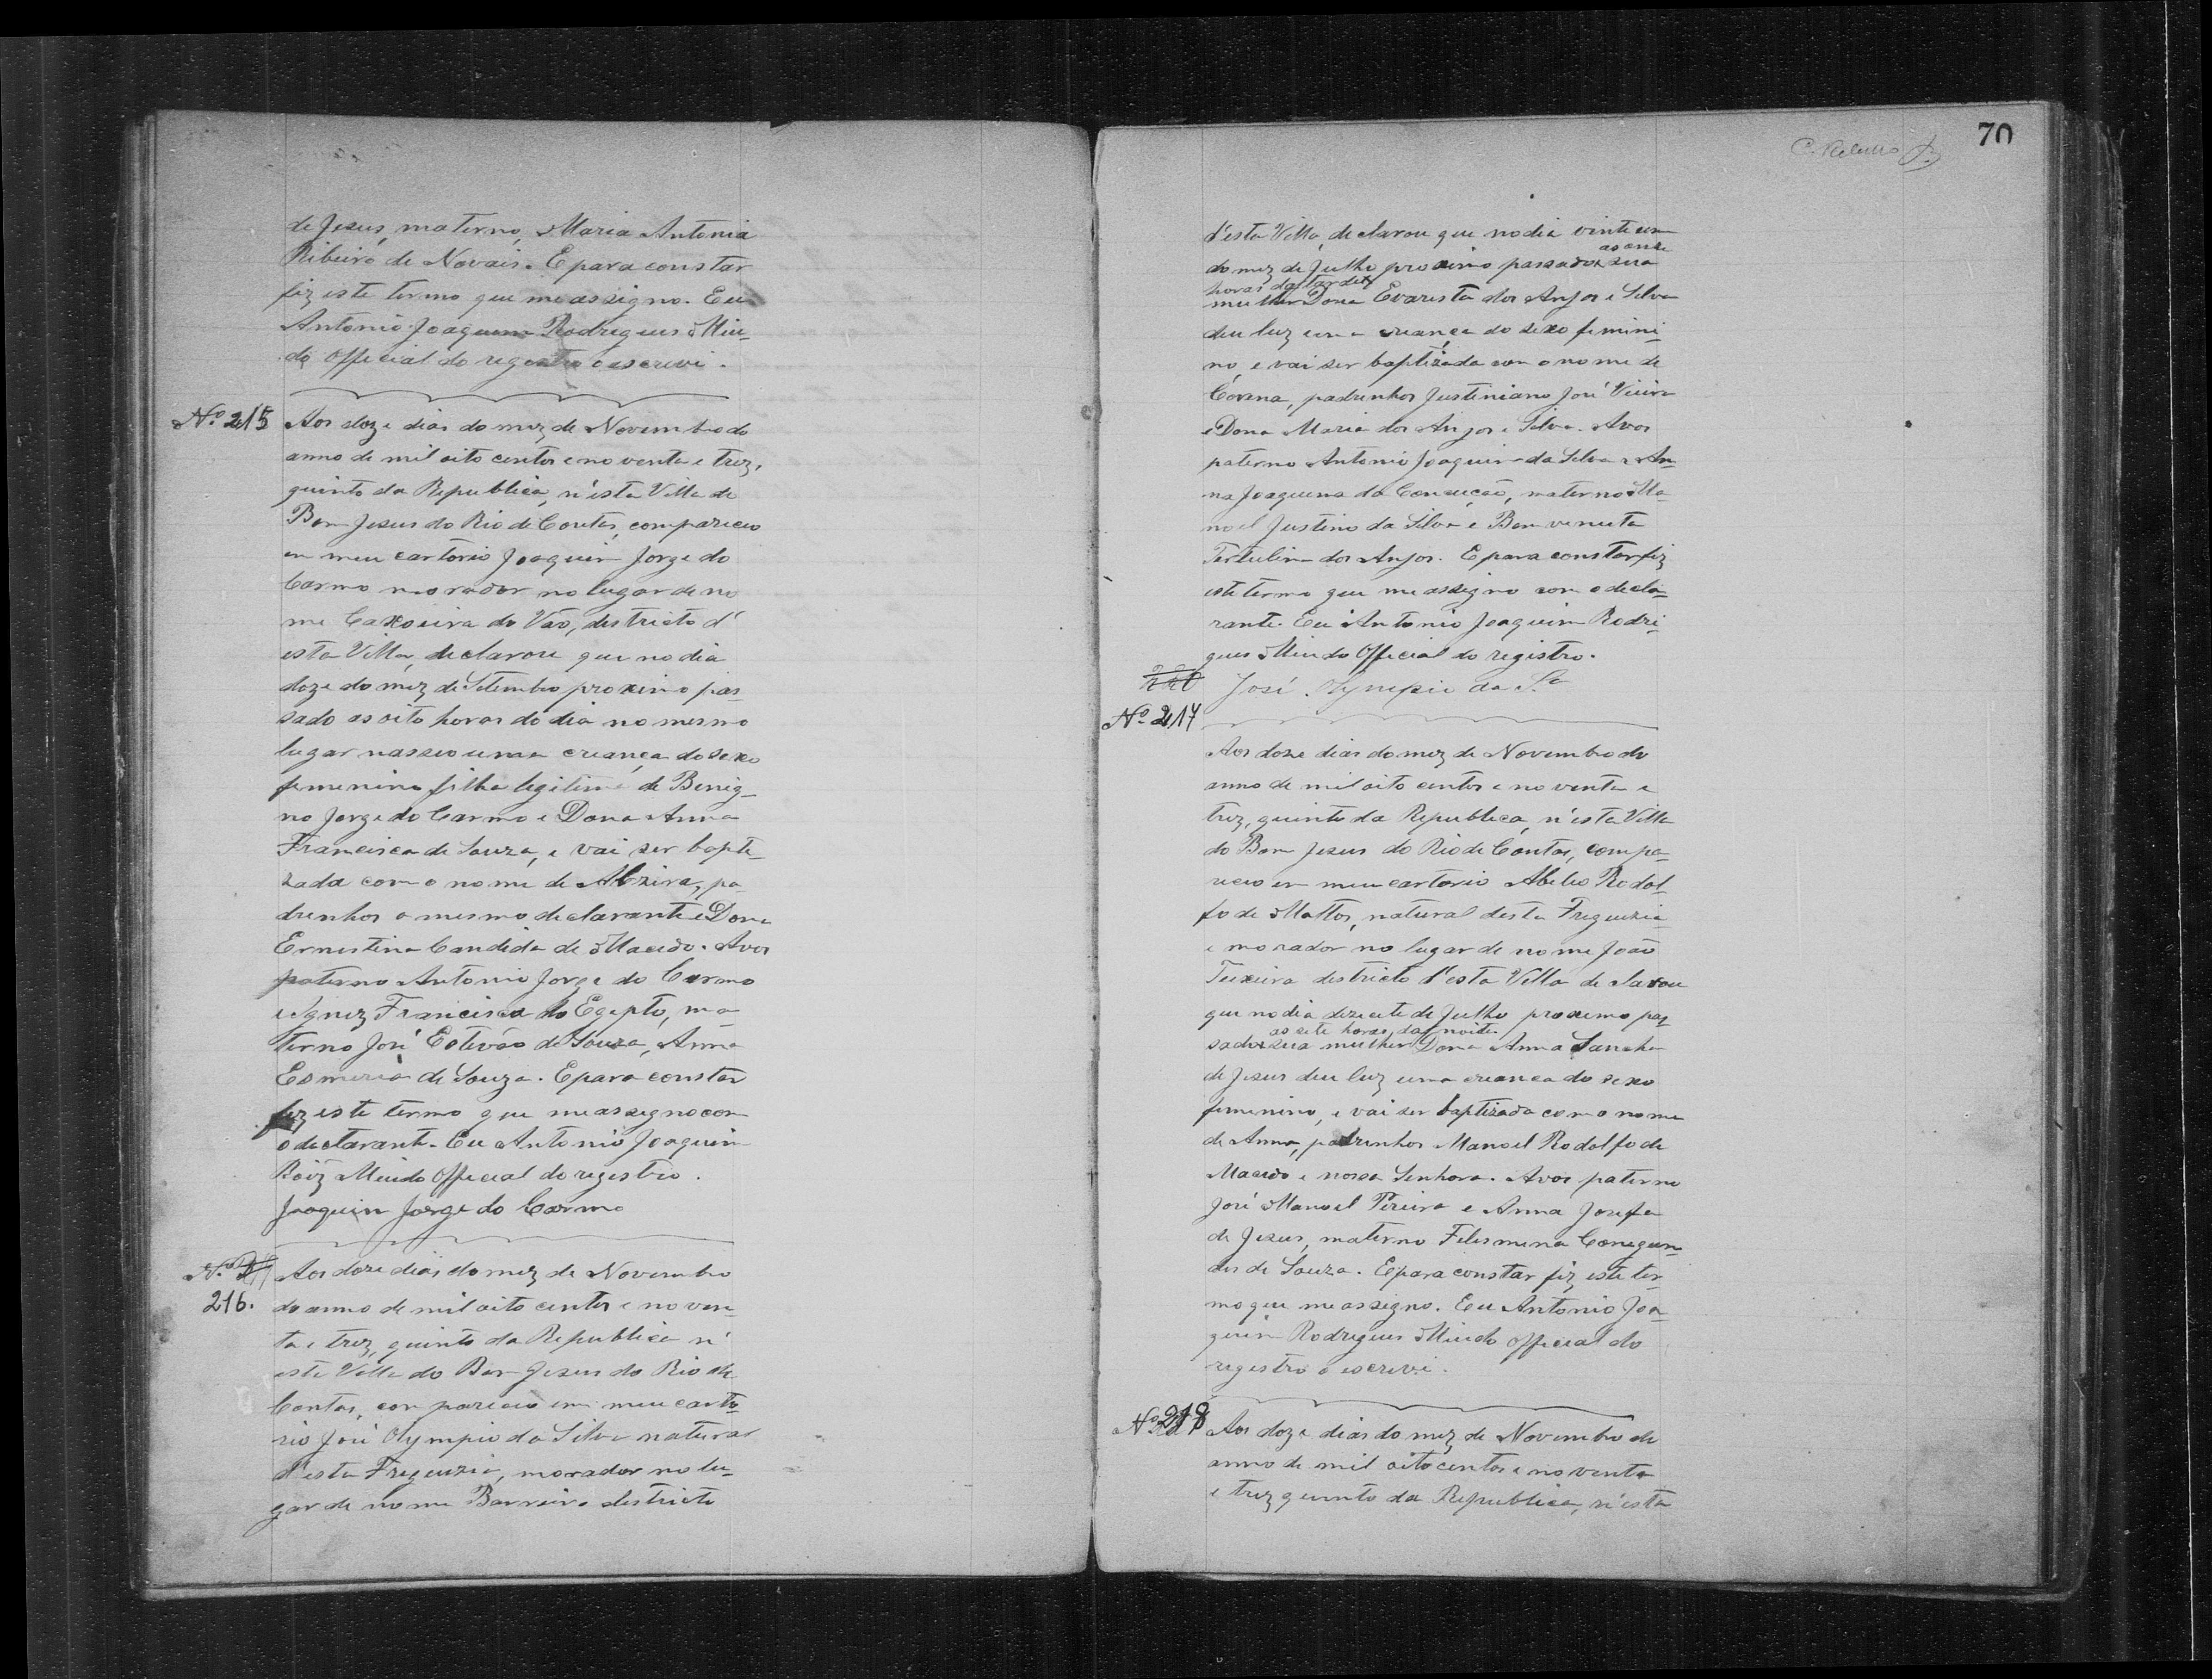 de Jesus, materno, Maria Antonia
Ribeiro de Novais. E para constar
fiz este termo que me assigno. Eu
Antonio Joaquim Rodrigues Miu-
do Official do registro o escrevi.
Nº 215
Aos doze dias do mez de Novembro do
anno de mil oito centos e noventa e trez,
quinto da Republica, n'esta Villa do
Bom Jesus do Rio de Contas, compareceo
em meu cartorio Joaquim Jorge do
Carmo morador no lugar de no
me Caxoeira do Vão, districto d'
esta Villa, declarou que no dia
doze do mez de Setembro proximo pas
sado as oito horas do dia no mesmo
lugar nasceo uma creança do sexo
femenino filha legitima de Benig-
no Jorge do Carmo e Dona Anna
Francisca de Souza, e vai ser bapti-
zada com o nome de Alzira, pa-
drinhos o mesmo declarante e Dona
Ernestina Candida de Macedo. Avos
paterno Antonio Jorge do Carmo
e Ignez Francisca do Egepto, ma-
terno José Estevão de Souza, Anna
Esmeria de Souza. E para constar
fiz este termo que me assigno com
o declarante. Eu Antonio Joaquim
Roiz Miudo Official do registro.
Joaquim Jorge do Carmo
Nº
216.
Aos doze dias do mez de Novembro
do anno de mil oito centos e noven-
ta e trez, quinto da Republica n'
esta Villa do Bom Jesus do Rio de
Contas, compareceo em meu carto-
rio José Olympio da Silva natural
d'esta Freguezia, morador no lu-
gar de nome Barreiro districto
70
d'esta Villa, declarou que no dia vinte um
as onze
do mez de Julho proximo passado sua
horas da tarde
mulher Dona Evarista dos Anjos e Silva
deu luz uma creança do sexo femini-
no, e vai ser baptizada com o nome de
Corina, padrinhos Justiniano José Vieira
e Dona Maria dos Anjos e Silva. Avos
paterno Antonio Joaquim da Silva e An-
na Joaquina da Conceição, materno Ma-
noel Justino da Silva e Bemvenuta
Tertulina dos Anjos. E para constar fiz
este termo que me assigno com o decla-
rante. Eu Antonio Joaquim Rodri-
gues Miudo Official do registro.
José Olympio da Sª
Nº 217
Aos doze dias do mez de Novembro do
anno de mil oito centos e noventa e
trez, quinto da Republica, n'esta Villa
do Bom Jesus do Rio de Contas, compa-
receo em meu cartorio Abilio Rodol-
fo de Mattos, natural desta Freguezia
e morador no lugar de nome João
Teixeira districto d'esta Villa declarou
que no dia dezesete de Julho proximo pas
as sete horas da noite
sado sua mulher Dona Anna Sancha
de Jesus deu luz uma creança do sexo
femenino, e vai ser baptizada com o nome
de Anna, padrinhos Manoel Rodolfo de
Macedo e nossa Senhora. Avos paterno
José Manoel Pereira e Anna Josefa
de Jesus, materno Felesmena Conegun-
des de Souza. E para constar fiz este ter-
mo que me assigno. Eu Antonio Joa-
quim Rodrigues Miudo Official do
registro o escrevi.
Nº 218
Aos doze dias do mez de Novembro do
anno de mil oito centos e noventa
e trez quinto da Republica, n'esta